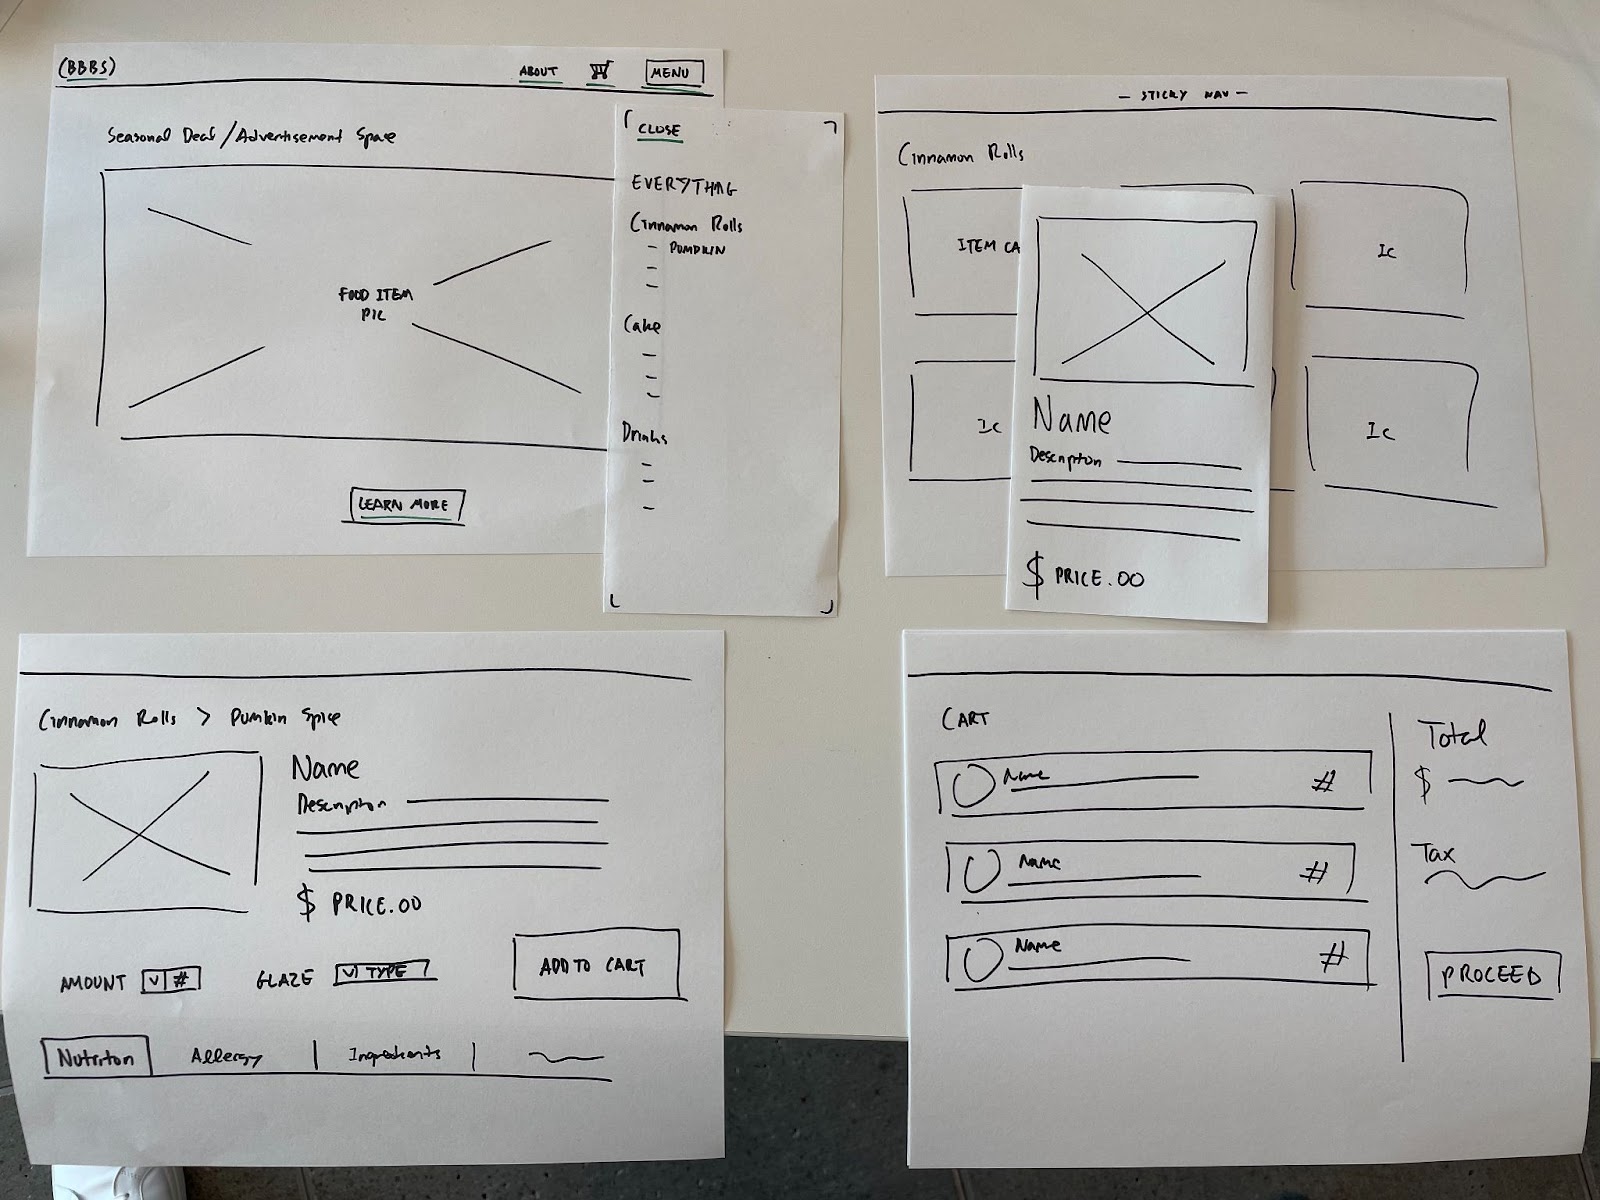 (BBBS)
ABOUT
MENU
Seasonal Deal / Advertisement Space
FOOD ITEM
PIC
LEARN MORE
CLOSE
EVERYTHNG
Cinnamon Rolls
- PUMPKIN
-
-
Cake
-
-
-
Drinks
-
-
-
- STICKY NAV -
Cinnamon Rolls
ITEM CA
Ic
Ic
Ic
Name
Description
$ PRICE.00
Cinnamon Rolls > Pumkin Spice
Name
Description
$ PRICE.00
AMOUNT v #
GLAZE v TYPE
ADD TO CART
Nutriton
Allergy | Ingredients |
CART
Name #
Name #
Name #
Total
$
Tax
PROCEED